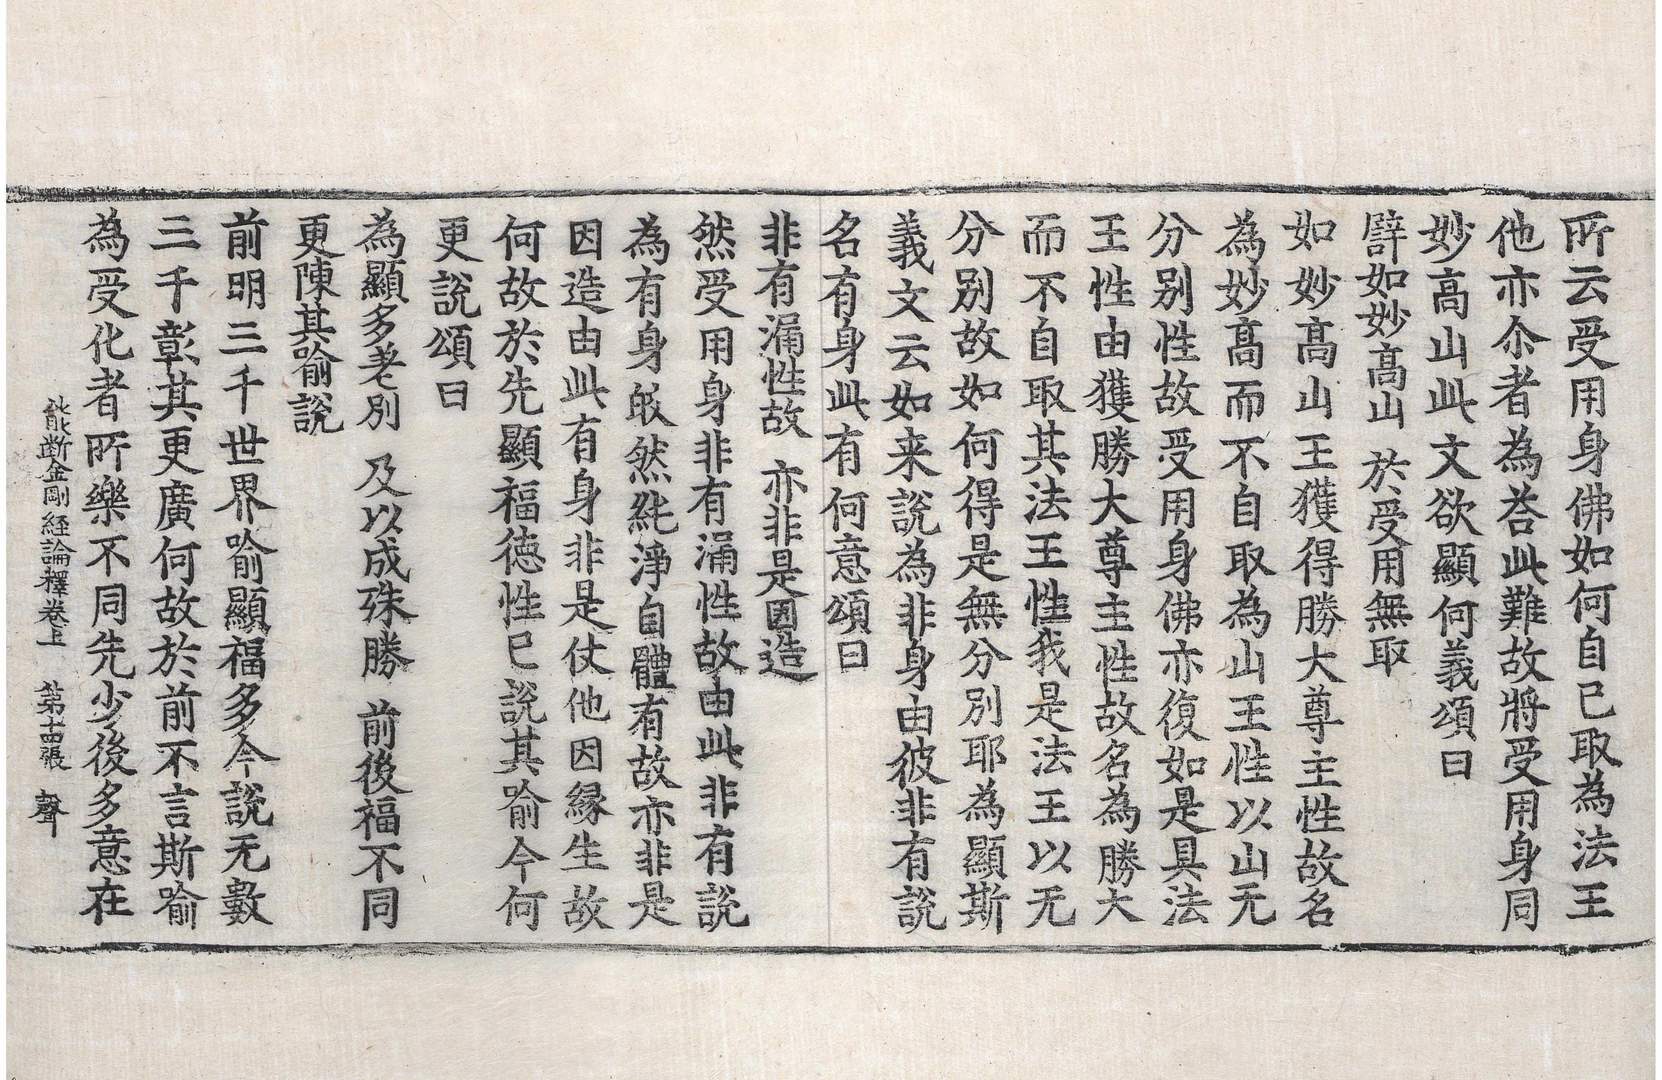 所云受用身佛如何自已取為法王
他亦尒者為荅此難故將受用身同
妙髙山此文欲顯何義頌曰
譬如妙髙山 於受用無取
如妙髙山王獲得勝大尊主性故名
為妙髙而不自取為山王性以山无
分别性故受用身佛亦復如是具法
王性由獲勝大尊主性故名為勝大
而不自取其法王性我是法王以无
分别故如何得是無分別耶為顯斯
義文云如来說為非身由彼非有說
名有身此有何意頌曰
非有漏性故 亦非是因造
然受用身非有漏性故由此非有說
為有身㫁然純淨自體有故亦非是
因造由此有身非是仗他因緣生故
何故於先顯福德性已說其喻今何
更說頌曰
為顯多差别 及以成殊勝 前後福不同
更陳其喻說
前明三千世界喻顯福多今說无數
三千彰其更廣何故於前不言斯喻
為受化者所樂不同先少後多意在
能斷金剛經論釋卷上 第十四張 聲